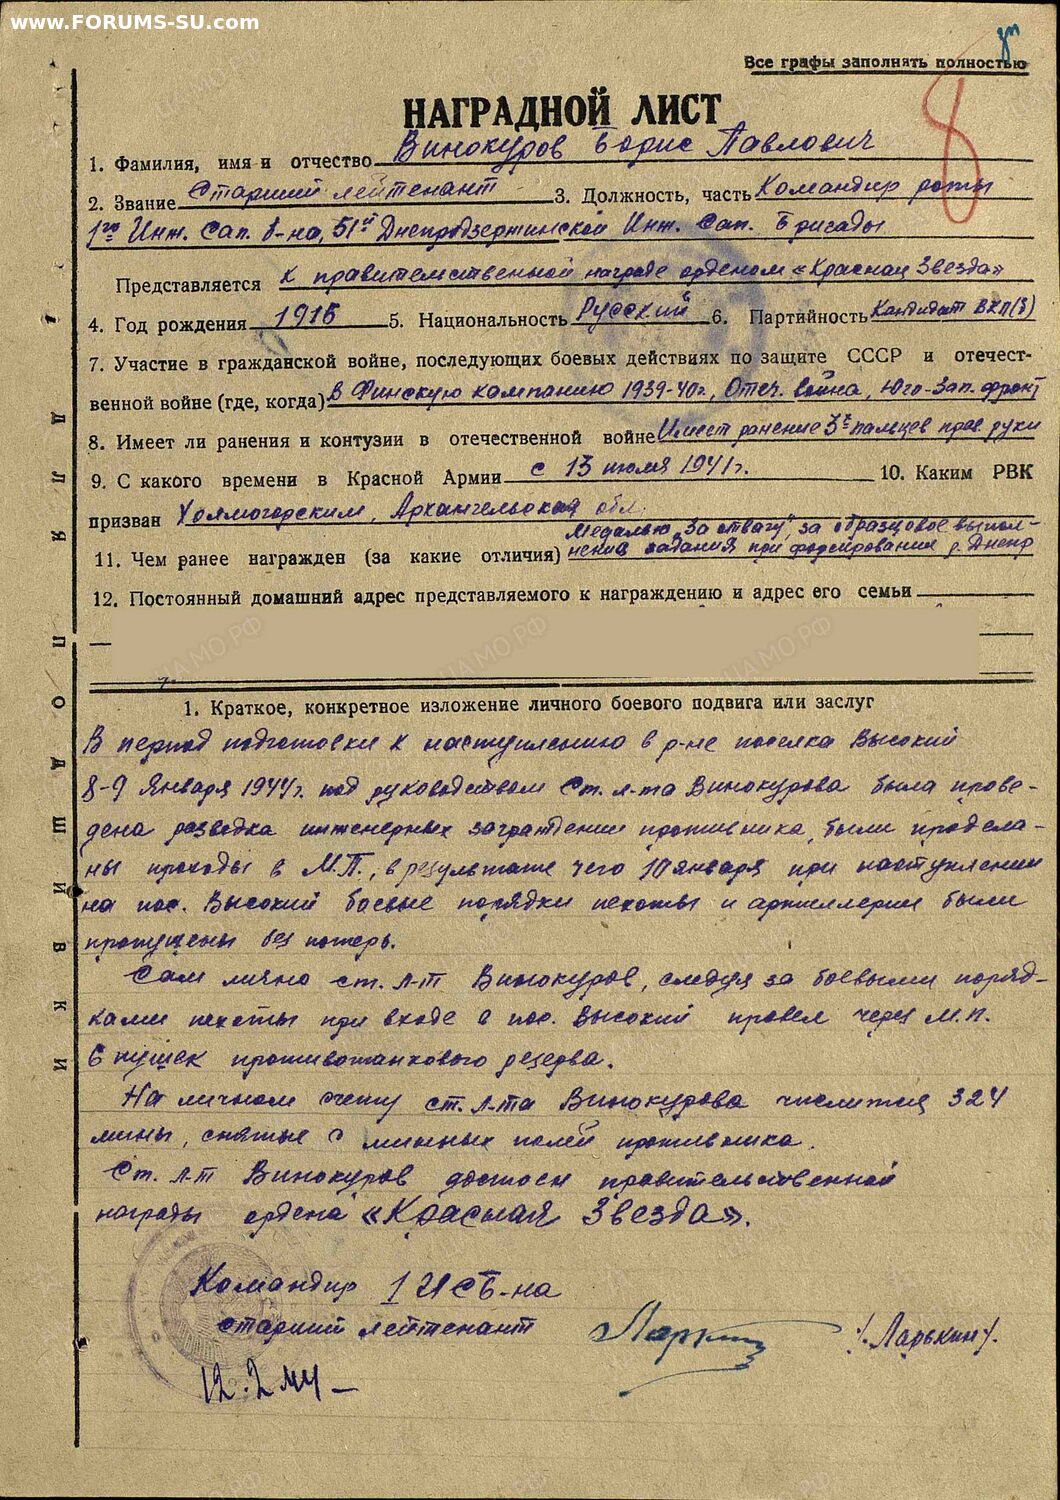 www.FORUMS-SU.com
Все графы заполнять полностью
8
НАГРАДНОЙ ЛИСТ
1. Фамилия, имя и отчество Винокуров Борис Павлович
2. Звание Старший лейтенант 3. Должность, часть Командир роты
1го Инж. Сап. б-на, 51й Днепродзержинской Инж. Сап. Бригады
Представляется к правительственной награде орденом «Красная Звезда»
4. Год рождения 1916 5. Национальность Русский 6. Партийность Кандидат ВКП(б)
7. Участие в гражданской войне, последующих боевых действиях по защите СССР и отечест-
венной войне (где, когда) В Финскую кампанию 1939-40г, Отеч. война, Юго-Зап. фронт
8. Имеет ли ранения и контузии в отечественной войне Имеет ранение 3х пальцев прав. руки
9. С какого времени в Красной Армии с 13 июля 1941г. 10. Каким РВК
призван Холмогорским, Архангельская обл.
Медалью "За отвагу", за образцовое выпол-
11. Чем ранее награжден (за какие отличия) нение задания при форсировании р. Днепр
12. Постоянный домашний адрес представляемого к награждению и адрес его семьи
1. Краткое, конкретное изложение личного боевого подвига или заслуг
В период подготовки к наступлению в р-не поселка Высокий
8-9 Января 1944г. под руководством Ст. л-та Винокурова была прове-
дена разведка инженерных заграждений противника, были продела-
ны проходы в М.П., в результате чего 10 января при наступлении
на пос. Высокий боевые порядки пехоты и артиллерии были
пропущены без потерь.
Сам лично ст. л-т Винокуров, следуя за боевыми поряд-
ками пехоты при входе в пос. Высокий провел через М.П.
6 пушек противотанкового резерва.
На личном счету ст. л-та Винокурова числится 324
мины, снятые с минных полей противника.
Ст. л-т Винокуров достоен правительственной
награды ордена «Красная Звезда».
Командир 1 ИСБ-на
старший лейтенант Ларкин /Ларькин/.
12.2.44
ДЛЯ ПОДШИВКИ